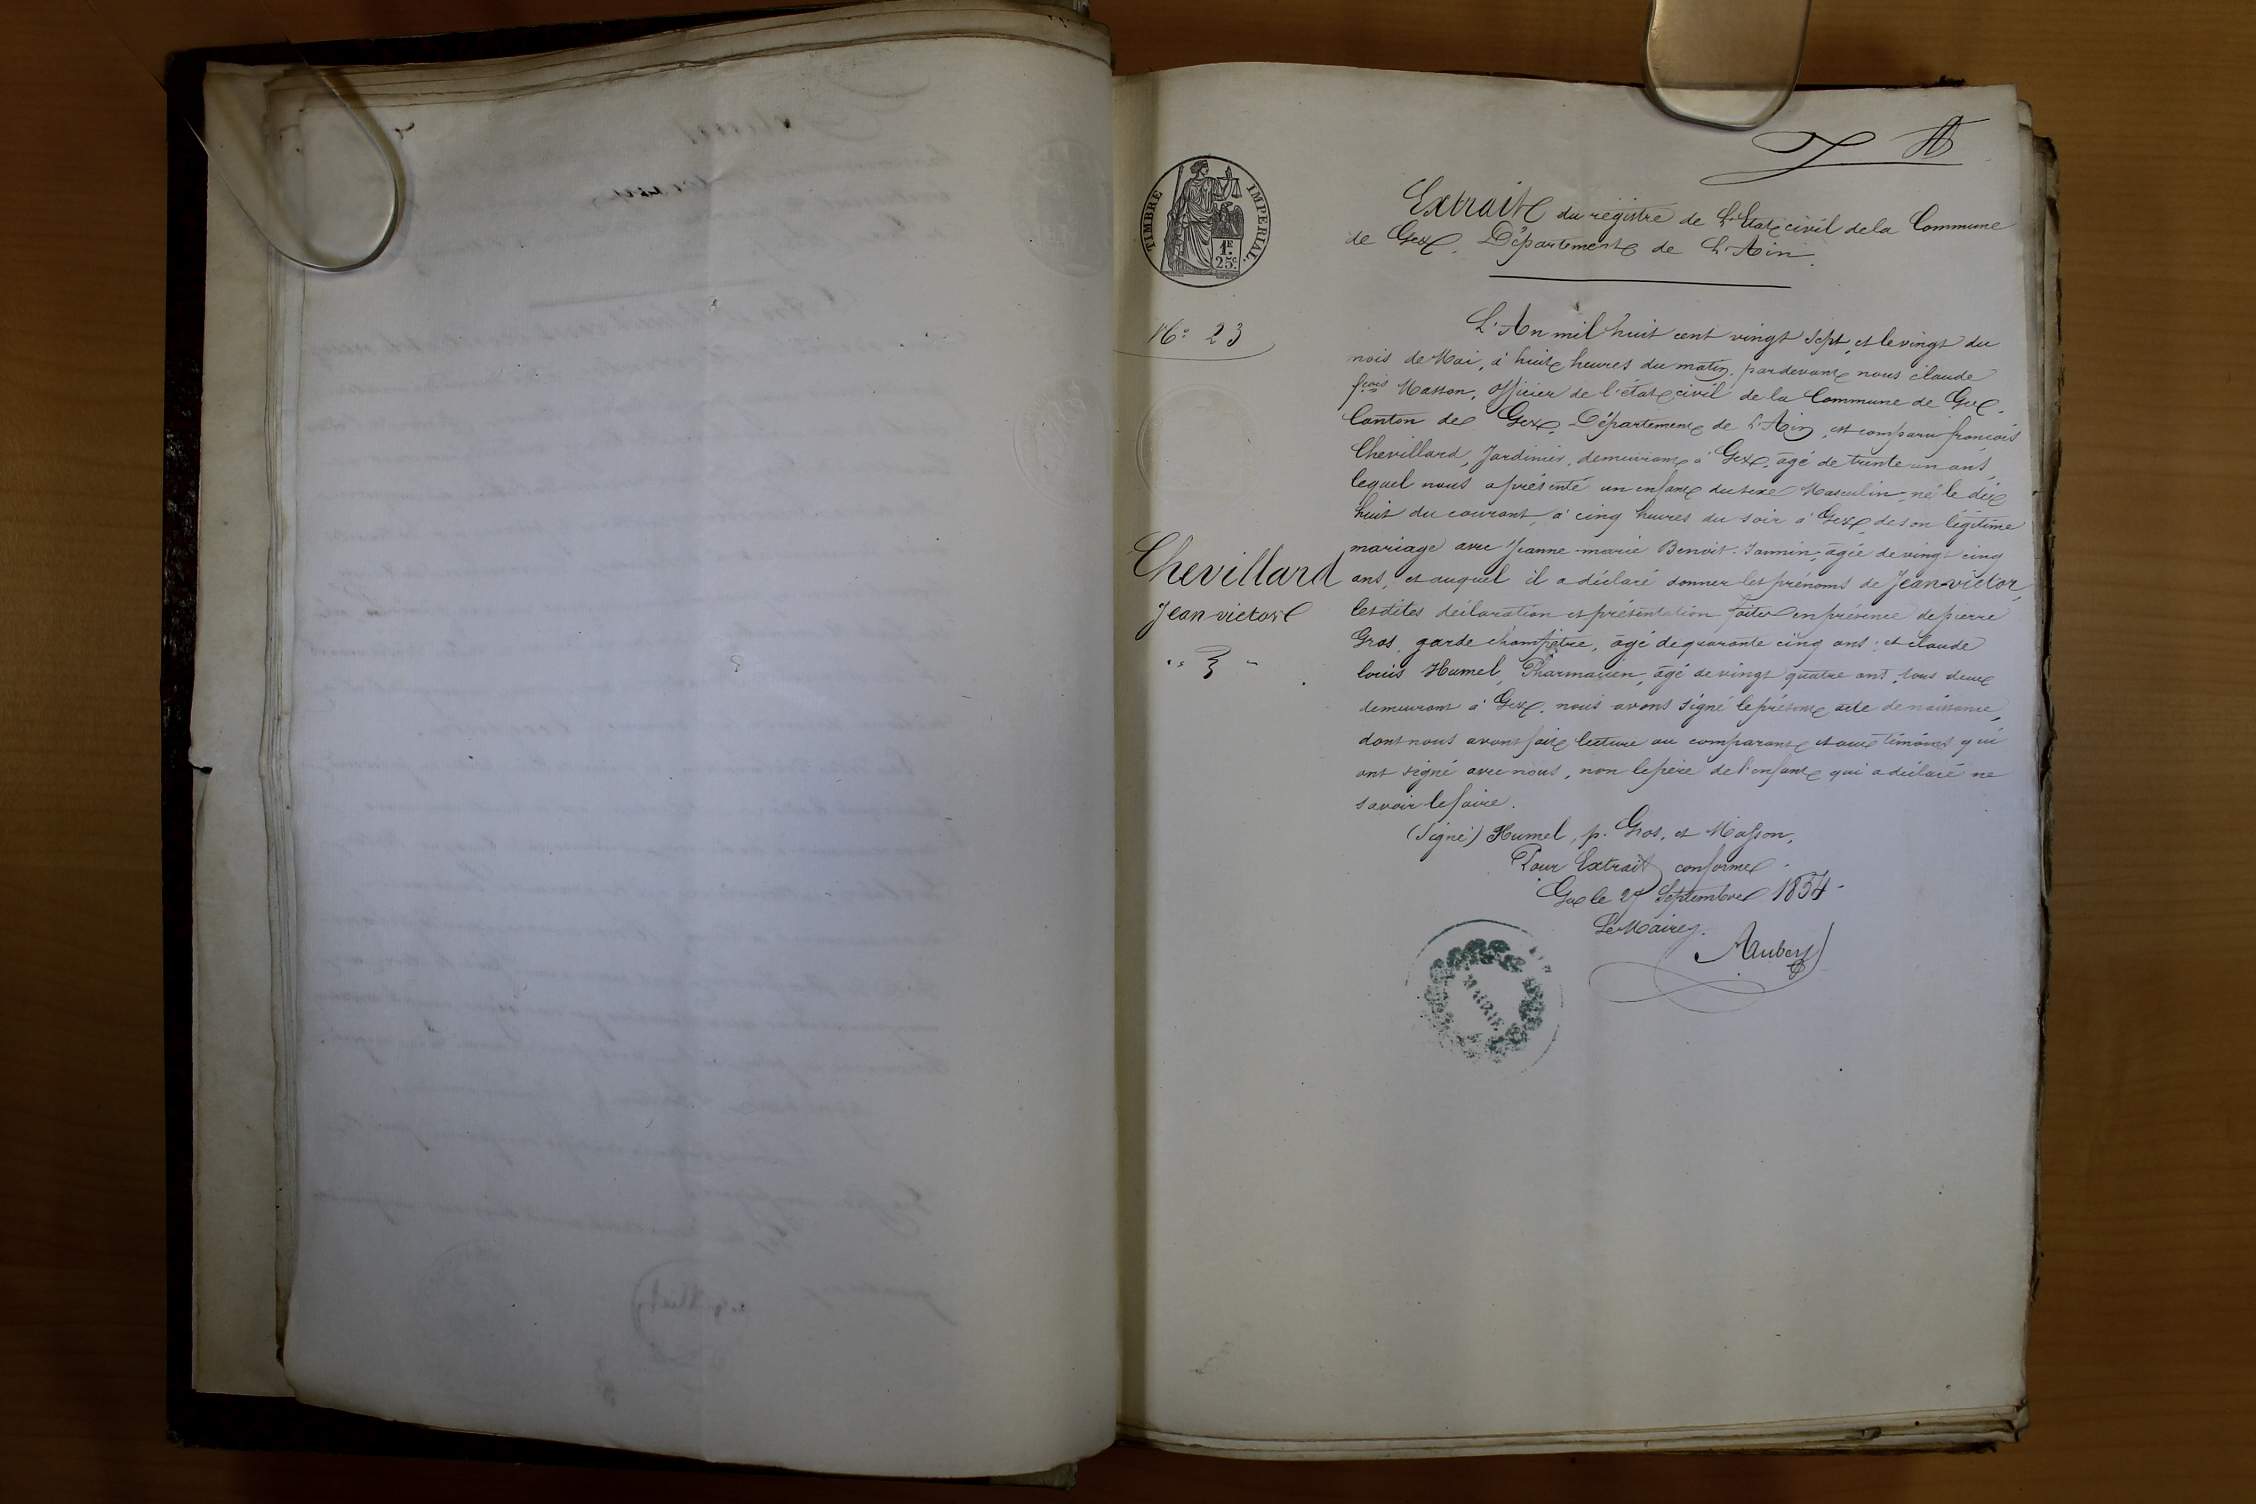 TIMBRE IMPERIAL.
1F.
25c.
Extrait du régistre de L'Etat civil de la Commune
de Gex, Département de L'Ain.
No 23
L'An mil huit cent vingt sept, et le vingt du
mois de Mai, à huit heures du matin, pardevant nous claude
fçois Masson, officier de l'état civil de la Commune de Gex,
Canton de Gex, Département de L'Ain, est comparu françois
Chevillard, Jardinier, demeurant à Gex, âgé de trente un ans,
lequel nous a présenté un enfant du sexe Masculin, né le dix
huit du courant, à cinq heures du soir à Gex, de son légitime
mariage avec Jeanne-marie Benoit-Jannin, âgée de vingt cinq
ans, et auquel il a déclaré donner les prénoms de Jean-victor,
Chevillard
Jean-victor
lesdites déclaration et présentation faites en présence de pierre
Gros, garde champêtre, âgé de quarante cinq ans, et claude
louis Humel, Pharmacien, âgé de vingt quatre ans, tous deux
demeurant à Gex, nous avons signé le présent acte de naissance,
dont nous avons fait lecture au comparant et aux témoins qui
ont signé avec nous, non le père de l'enfant qui a déclaré ne
savoir le faire.
(Signé) Humel, p. Gros, et Masson.
Pour Extrait conforme
Gex le 27 Septembre 1854.
Le Maire,
Aubery
MAIRIE